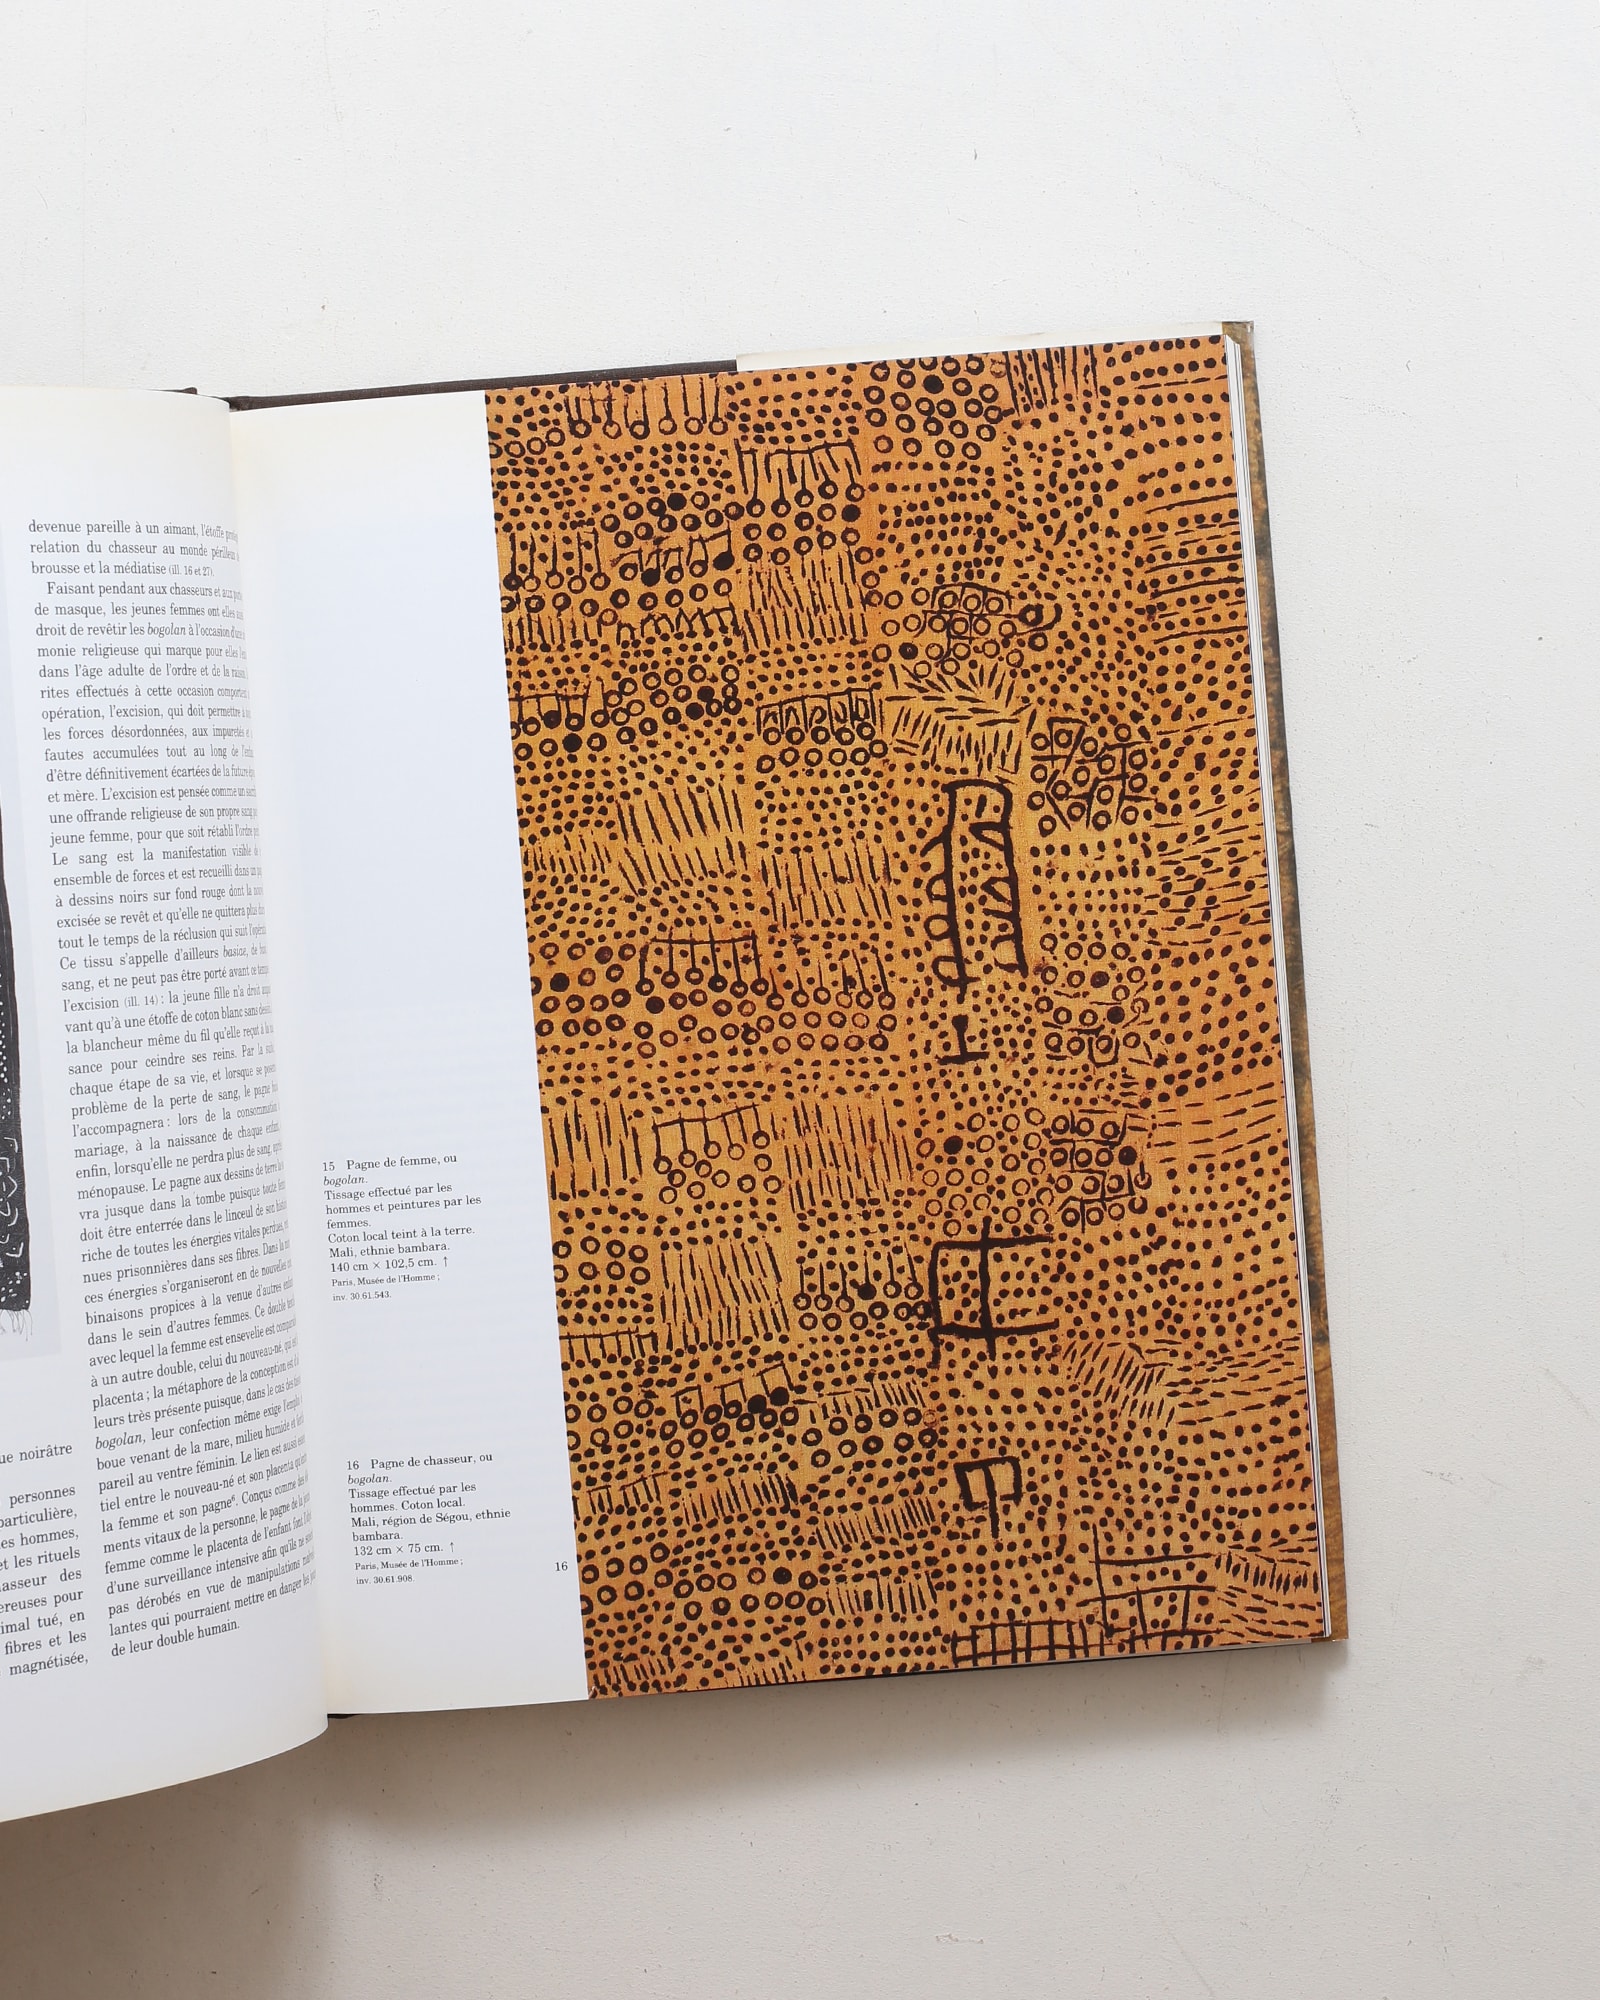 ue noirâtre
personnes
particulière,
es hommes,
et les rituels
asseur des
ereuses pour
imal tué, en
fibres et les
magnétisée,
devenue pareille à un aimant, l'étoffe
relation du chasseur au monde périlleux
brousse et la médiatise (ill. 16 et 27).
Faisant pendant aux chasseurs et aux
de masque, les jeunes femmes ont elles
droit de revêtir les bogolan à l'occasion d'une
monie religieuse qui marque pour elles
dans l'âge adulte de l'ordre et de la raison.
rites effectués à cette occasion comportent
opération, l'excision, qui doit permettre à
les forces désordonnées, aux impuretés
fautes accumulées tout au long de
d'être définitivement écartées de la future
et mère. L'excision est pensée comme un
une offrande religieuse de son propre sang
jeune femme, pour que soit rétabli l'ordre
Le sang est la manifestation visible
ensemble de forces et est recueilli dans un
à dessins noirs sur fond rouge dont la
excisée se revêt et qu'elle ne quittera plus
tout le temps de la réclusion qui suit
Ce tissu s'appelle d'ailleurs basiae, de
sang, et ne peut pas être porté avant ce
l'excision (ill. 14) : la jeune fille n'a droit
vant qu'à une étoffe de coton blanc sans
la blancheur même du fil qu'elle reçut à la
sance pour ceindre ses reins. Par la
chaque étape de sa vie, et lorsque se
problème de la perte de sang, le pagne
l'accompagnera : lors de la consommation
mariage, à la naissance de chaque enfant,
enfin, lorsqu'elle ne perdra plus de sang,
ménopause. Le pagne aux dessins de terre la
vra jusque dans la tombe puisque toute
doit être enterrée dans le linceul de son
riche de toutes les énergies vitales perdues,
nues prisonnières dans ses fibres. Dans la
ces énergies s'organiseront en de nouvelles
binaisons propices à la venue d'autres
dans le sein d'autres femmes. Ce double
avec lequel la femme est ensevelie est
à un autre double, celui du nouveau-né, qui est
placenta ; la métaphore de la conception est
leurs très présente puisque, dans le cas des
bogolan, leur confection même exige l'emploi
boue venant de la mare, milieu humide et
pareil au ventre féminin. Le lien est aussi
tiel entre le nouveau-né et son placenta
la femme et son pagne⁶. Conçus comme des
ments vitaux de la personne, le pagne de la
femme comme le placenta de l'enfant font
d'une surveillance intensive afin qu'ils ne
pas dérobés en vue de manipulations
lantes qui pourraient mettre en danger les
de leur double humain.
15 Pagne de femme, ou
bogolan.
Tissage effectué par les
hommes et peintures par les
femmes.
Coton local teint à la terre.
Mali, ethnie bambara.
140 cm × 102,5 cm. ↑
Paris, Musée de l'Homme ;
inv. 30.61.543.
16 Pagne de chasseur, ou
bogolan.
Tissage effectué par les
hommes. Coton local.
Mali, région de Ségou, ethnie
bambara.
132 cm × 75 cm. ↑
Paris, Musée de l'Homme ;
inv. 30.61.908.
16